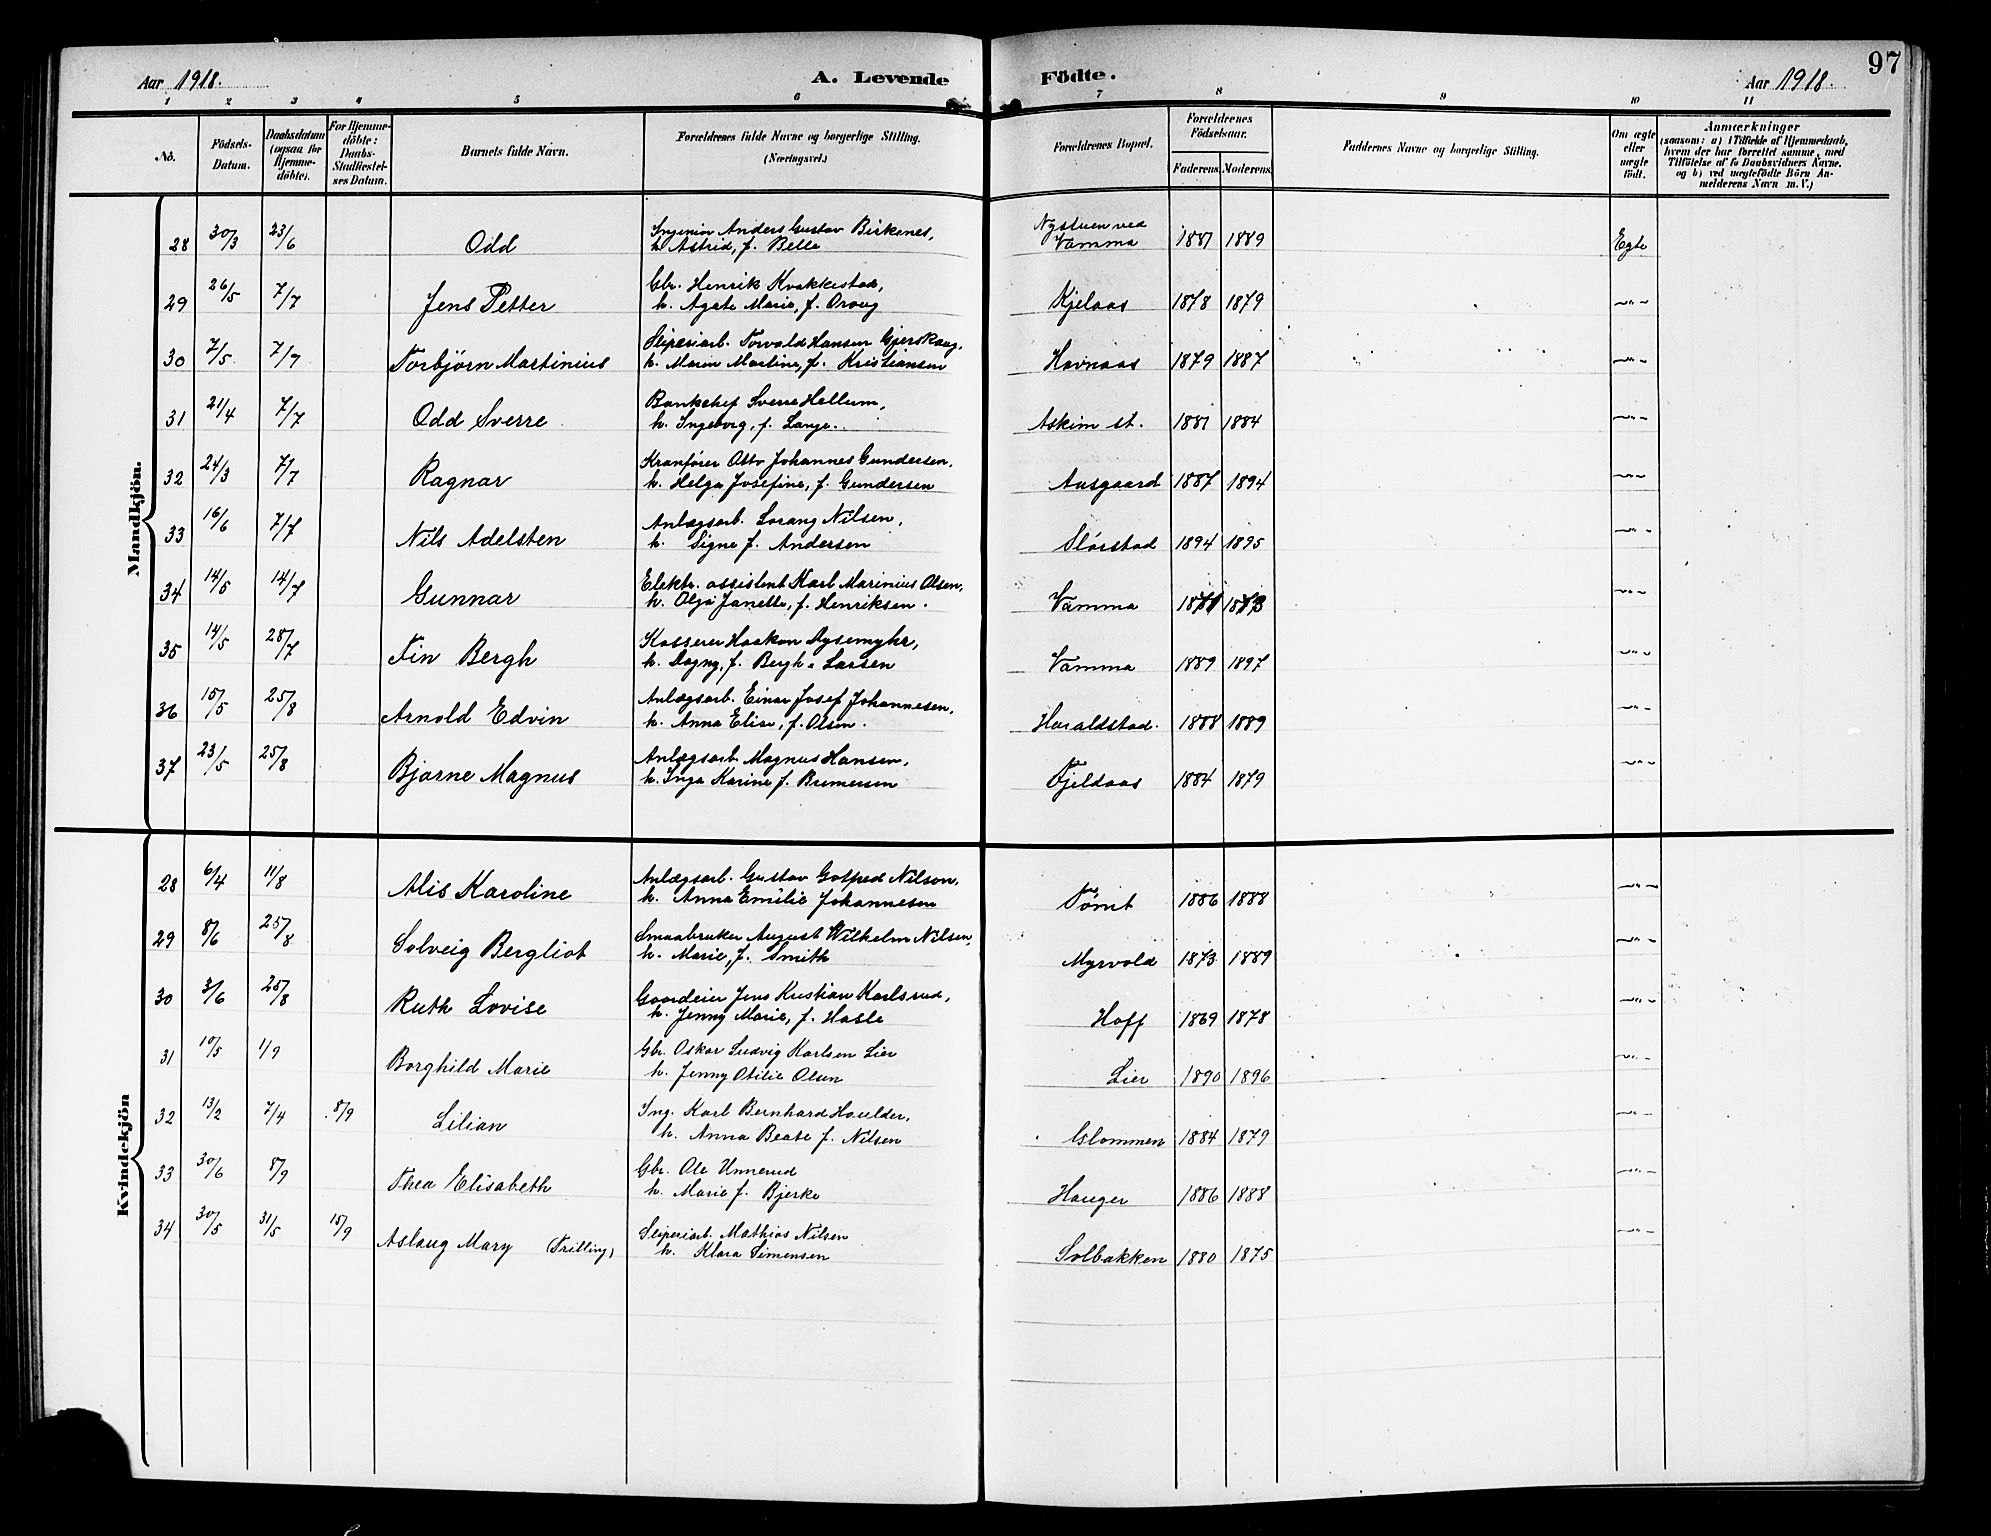 97
Aar 1918. A. Levende Födte. Aar 1918.
1 2 3 4 5 6 7 8 9 10 11
No. Födsels-Datum. Daabsdatum (ogsaa for Hjemme-döbte). For Hjemme-döbte: Daabs-Stadfæstel-ses Datum. Barnets fulde Navn. Forældrenes fulde Navne og borgerlige Stilling. (Næringsvei.) Forældrenes Bopæl. Forældrenes Födselsaar. Faderens. Moderens. Faddernes Navne og borgerlige Stilling. Om ægte eller uægte födt. Anmærkninger (saasom: a) i Tilfælde af Hjemmedaab, hvem der har forrettet samme, med Tilföielse af to Daabsvidners Navne, og b) ved uægtefödte Börn An-melderens Navn m. V.)
Mandkjön.
28 30/3 23/6 Odd Ingeniör Anders Gustav Birkenes, Nystuen ved
h. Astrid, f. Belle Vamma 1881 1889 Egte
29 26/5 7/7 Jens Petter Gbr. Henrik Kvakkestad,
h. Agate Marie, f. Oraug Kjelaas 1878 1879 -"-
30 7/5 7/7 Torbjörn Martinius Sliperiarb. Torvald Hansen Gjerskaug,
h. Maren Martine, f. Kristiansen Havnaas 1879 1887 -"-
31 21/4 7/7 Odd Sverre Bankchef Sverre Hellum,
h. Ingeborg, f. Lange. Askim st. 1881 1884 -"-
32 24/3 7/7 Ragnar Kranförer Otto Johannes Gundersen,
h. Helga Josefine, f. Gundersen Aasgaard 1887 1894 -"-
33 16/6 7/7 Nils Adelsten Anlægsarb. Lorang Nilsen,
h. Signe f. Andersen Slorstad 1894 1895 -"-
34 14/5 14/7 Gunnar Elektr. assistent Karl Marinius Olsen,
h. Olga Janette, f. Henriksen. Vamma -"-
35 14/5 28/7 Fin Bergh Kasserer Haakon Aysemyhr,
h. Dagny, f. Bergh-Larsen Vamma 1889 1897 -"-
36 15/5 25/8 Arnold Edvin Anlægsarb. Einar Josef Johannesen,
h. Anna Elise, f. Olsen. Haraldstad. 1888 1889 -"-
37 23/5 25/8 Bjarne Magnus Anlægsarb Magnus Hansen,
h. Inga Karine f. Bremersen Fjeldaas 1884 1879 -"-
Kvindekjön
28 6/4 11/8 Alis Karoline Anlægsarb. Gustav Gotfred Nilson,
h. Anna Emilie Johannesen Tömt 1886 1888 -"-
29 8/6 25/8 Solveig Bergliot Smaabruker August Wilhelm Nilsen,
h. Marie, f. Smith Myrvold 1873 1889 -"-
30 3/6 25/8 Ruth Lovise Gaardeier Jens Kristian Karlsrud,
h. Jenny Marie, f. Hasle Hoff 1869 1878 -"-
31 10/5 1/9 Borghild Marie Gbr. Oskar Ludvig Karlsen Lier
h. Jenny Otilie Olsen Lier 1890 1896 -"-
32 13/2 7/4 8/9 Lilian Ing. Karl Bernhard Haulder,
h. Anna Beate f. Nilsen Glommen 1884 1879 -"-
33 30/6 8/9 Thea Elisabeth Gbr. Ole Unnerud
h. Marie f. Bjerke Hauger 1886 1888 -"-
34 30/5 31/5 15/9 Aslaug Mary (Trilling) Sliperiarb. Mathias Nilsen
h. Klara Simensen Solbakken 1880 1875 -"-